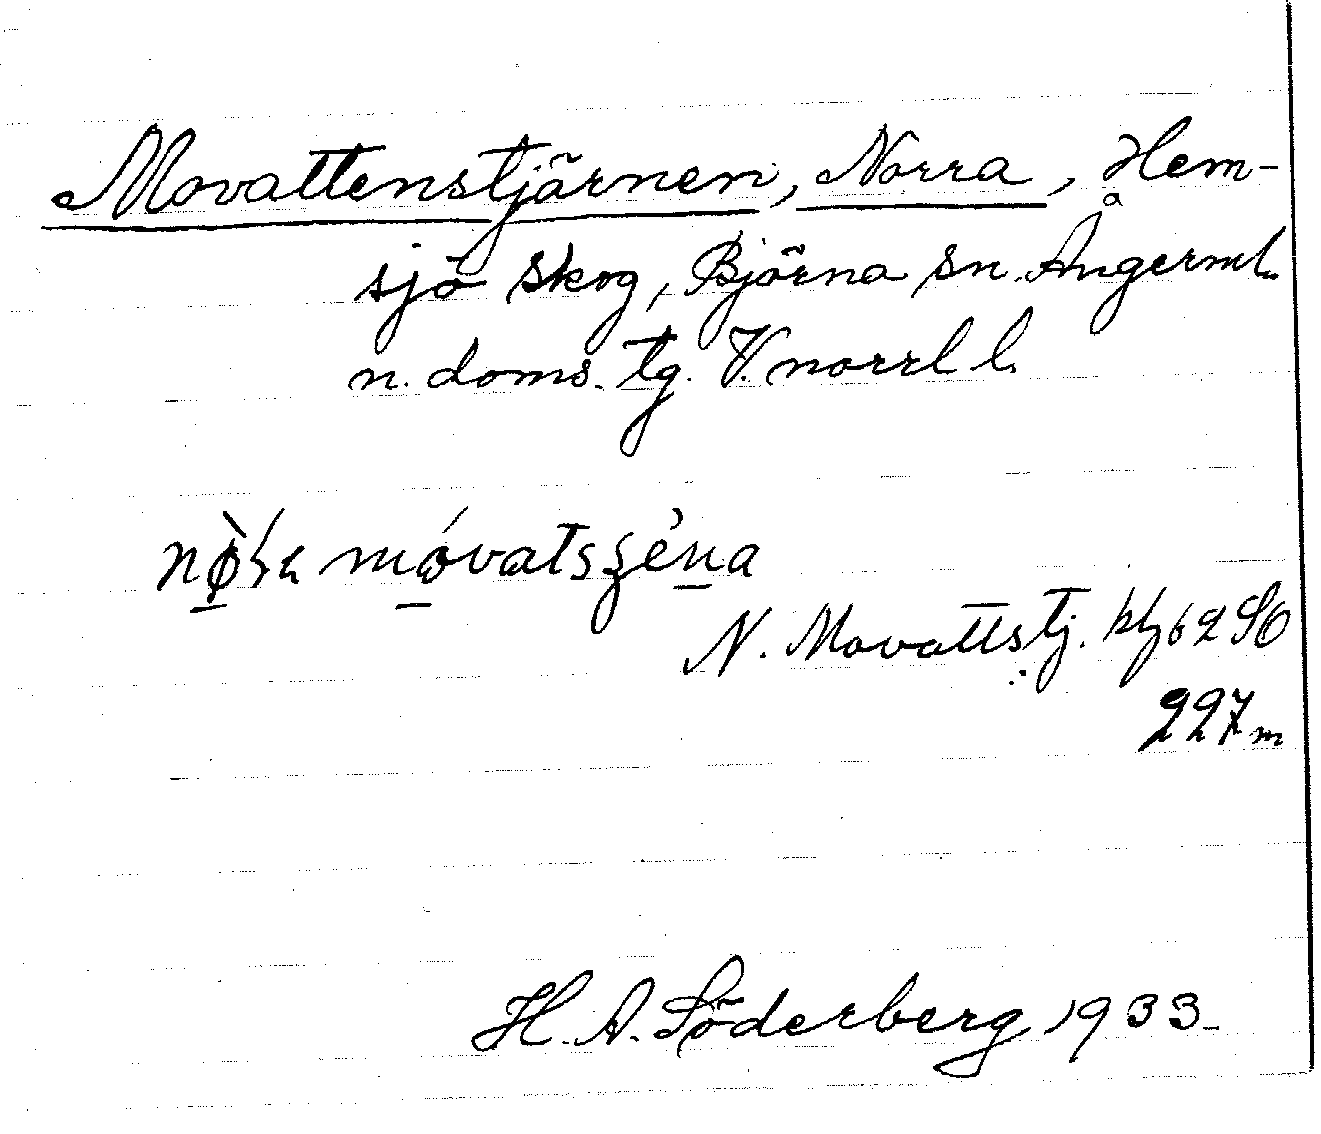 Movattenstjärnen, Norra, Hem-
sjö skog, Björna sn. Ångerml.
n. doms. tg. V. norrl l.
móvatsʒéna
N. Movattstj. kbl 62 SO
227 m
H. A. Söderberg 1933.